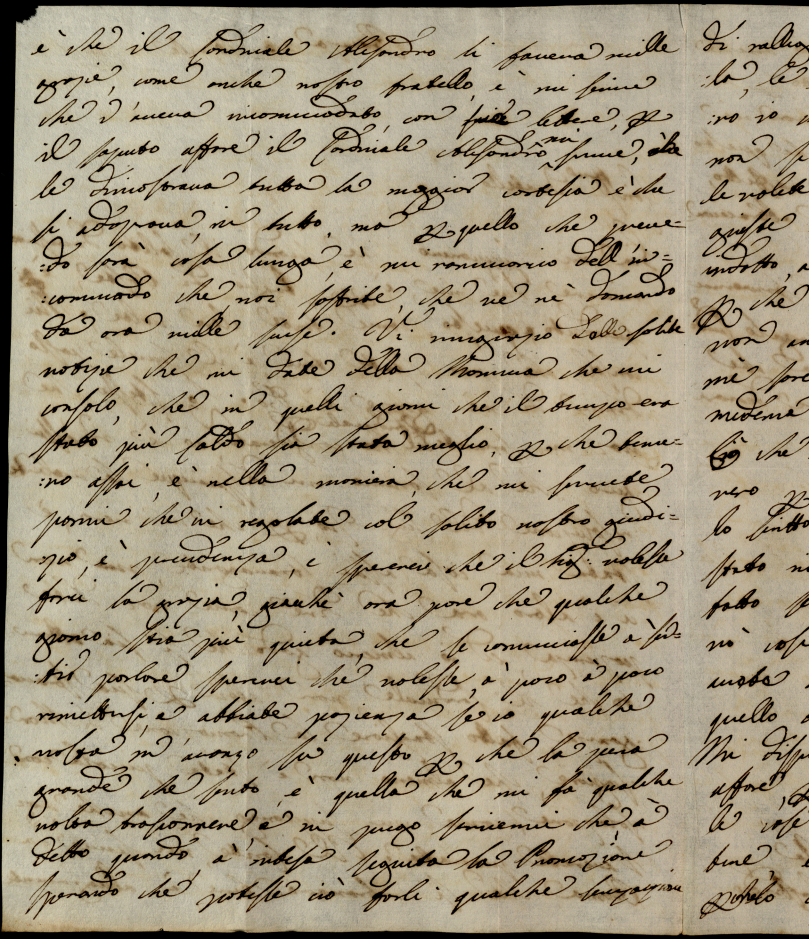 è che il Cardinale Alisandro li faceva mille
grazie, come anche nostro fratello, è mi scrive
che v'aveva incominciodato, con sue lettere, p
il saputo affare il Cardinale Alisandro mi scrive,
le dimostrava tutta la maggior cortesia è che
si adoprava in tutto, ma p quello che preve=
:do sarà cosa lunga è mi ramarico dell'in=
:commodo che voi soffrite, che ve nè domando
da ora mille scuse. Vi ringrazio delle solite
notizie che mi date della Mamma che mi
consolo, che in quelli giorni che il tempo era
stato più Caldo sia stata meglio, p che teme=
:vo assai, è nella maniera che mi scrivete
parmi che vi regolate col solito vostro giudi=
zio, è prudenza, è spererei che il Sig: volesse
farci la grazia, giachè ora pare che qualche
giorno stia più quieta, che se cominciasse a
parlare spererei che volesse, à poco à poco
rimettersi e abbiate pazienza se io qualche
volta m'avanzo su questo p che la pena
grande che sento, è quella che mi fà qualche
volta trasportare è vi prego scrivermi che à
detto quando à intesa seguita la Promozione
sperando che potesse ciò farli qualche
di ralleg
:la, le
:ro io
non
le volete
queste
indotto, a
p che
non
mè
medema
che
vero p
lo scritto
stato
fatto
nò cose
quello
Mi disp
affare
le cose
bene